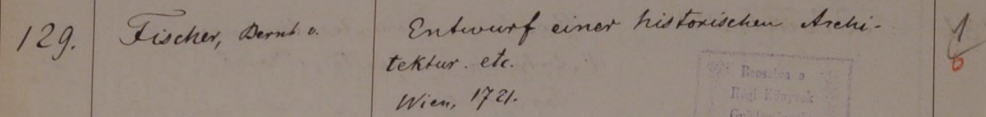 129. Fischer, Bernh. v. Entwurf einer historischen Archi-
tektur. etc.
Wien, 1721.
1
6
Régi Könyvek